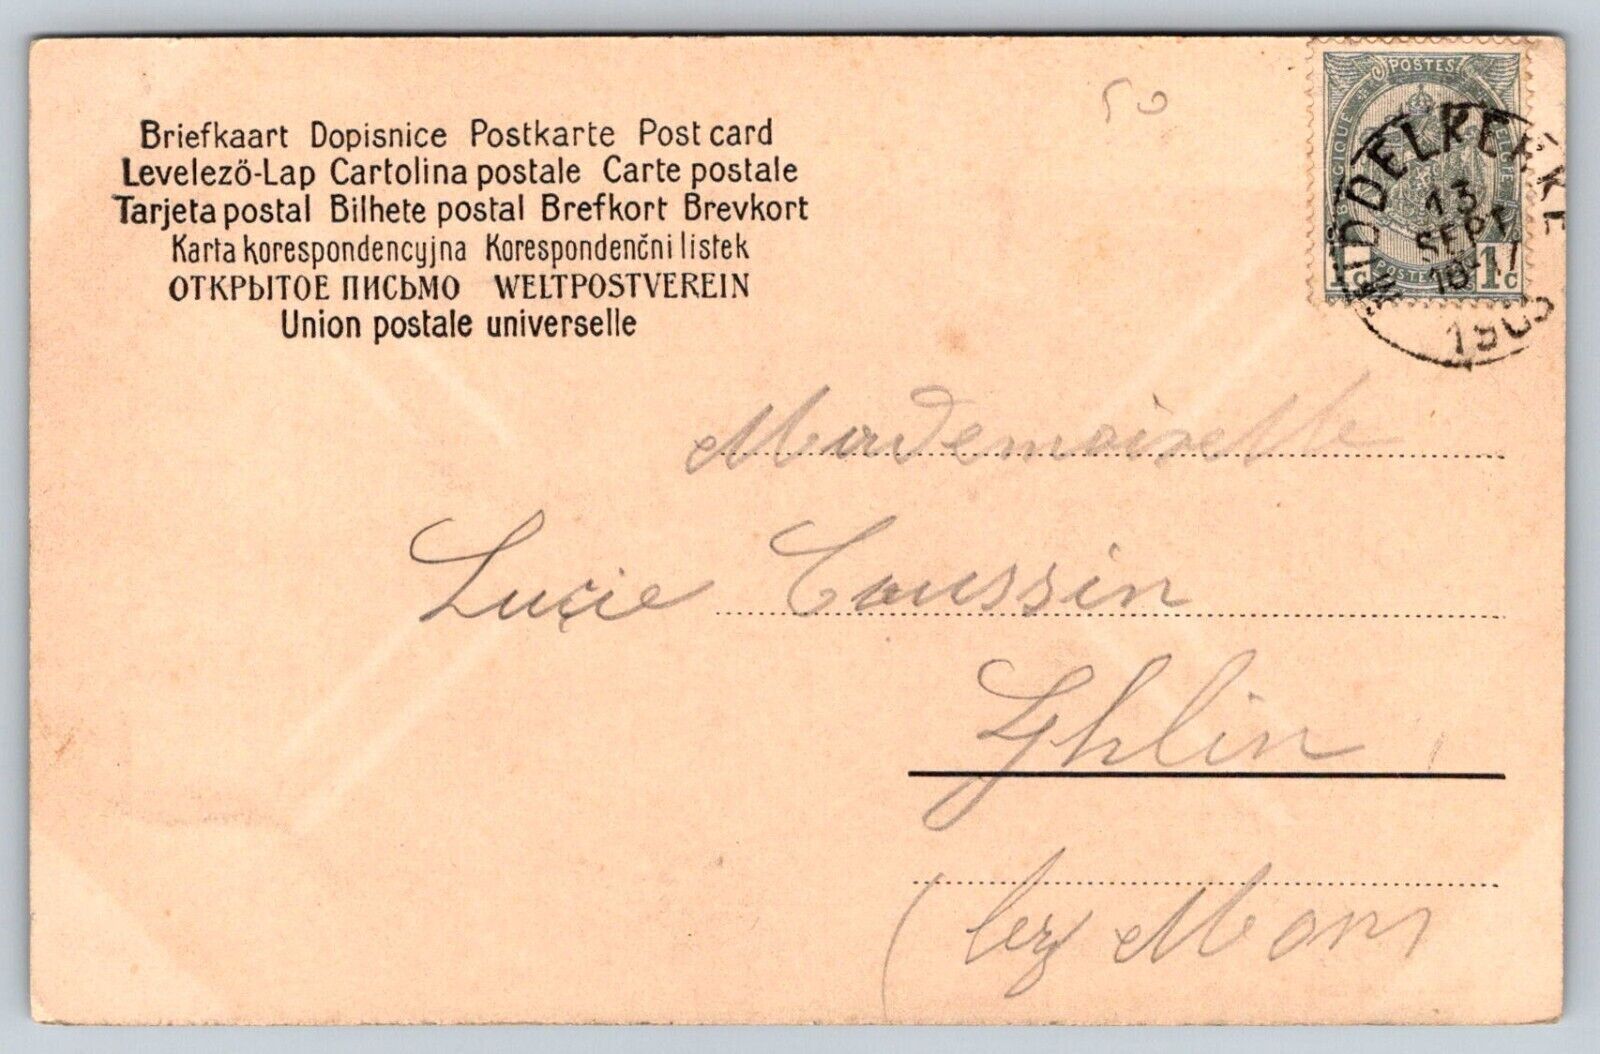 50
Briefkaart Dopisnice Postkarte Post card
Levelező-Lap Cartolina postale Carte postale
Tarjeta postal Bilhete postal Brefkort Brevkort
Karta korespondencyjna Korespondenčni listek
ОТКРЫТОЕ ПИСЬМО WELTPOSTVEREIN
Union postale universelle
POSTES
BELGIQUE BELGIE
1c 1c
MIDDELKERKE
13
SEPT
1905
Mademoiselle
Lucie Coussin
Ghlin
(lez Mons